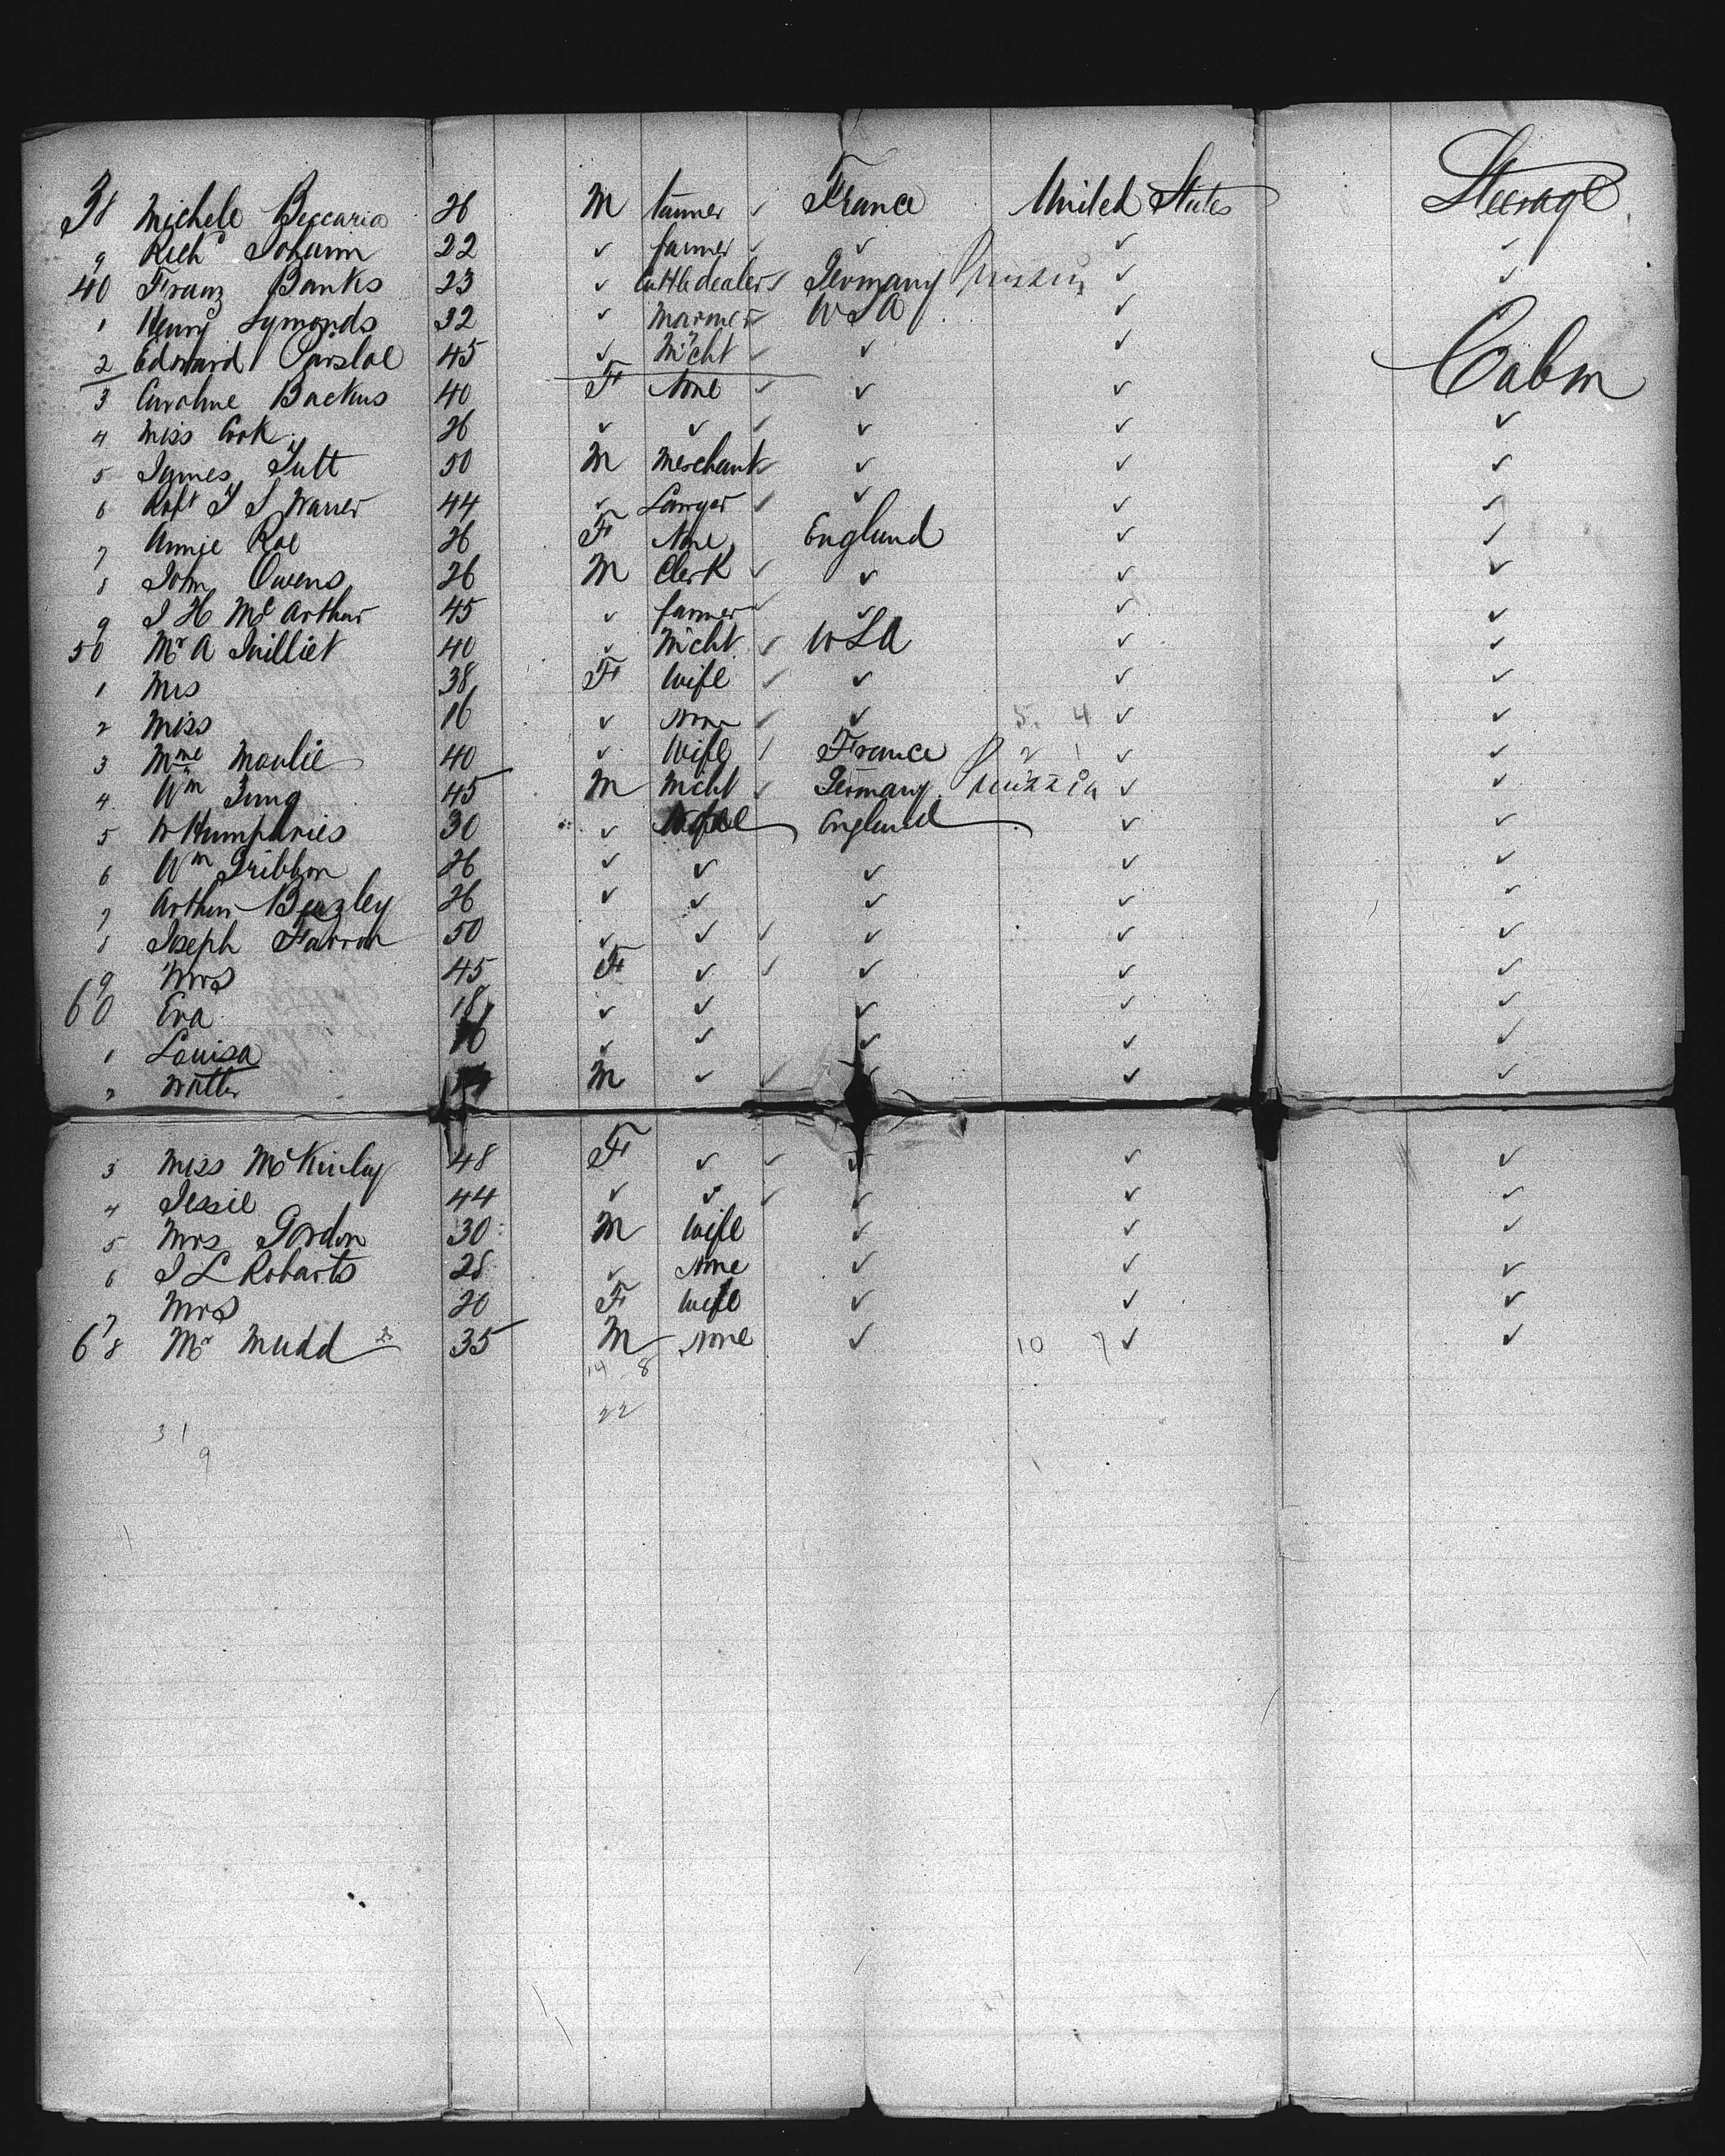 38 Michele Beccaria 26 M tanner ✓ France United States Steerage
9 Richd Johann 22 ✓ farmer ✓ ✓ ✓ ✓
40 Franz Banks 23 ✓ Cattledealer ✓ Germany Prussia ✓ ✓
1 Henry Symonds 32 ✓ Mariner ✓ USA ✓
2 Edward Parsloe 45 ✓ Mcht ✓ ✓ ✓
3 Caroline Backus 40 F None ✓ ✓ ✓ Cabin
4 Miss Cook 26 ✓ ✓ ✓ ✓ ✓ ✓
5 James Tutt 50 M Merchant ✓ ✓ ✓ ✓
6 Robt T S Warner 44 ✓ Lawyer ✓ ✓ ✓ ✓
7 Annie Roe 26 F None England ✓ ✓
8 John Owens 26 M Clerk ✓ ✓ ✓ ✓
9 J H McArthur 45 ✓ farmer ✓ ✓ ✓ ✓
50 Mr A 40 ✓ Mcht ✓ USA ✓ ✓
1 Mrs 38 F Wife ✓ ✓ ✓ ✓
2 Miss 16 ✓ None ✓ ✓ 5. 4 ✓ ✓
3 Mme Moulie 40 ✓ Wife / France 2 1 ✓ ✓
4 Wm Jung 45 M Mcht ✓ Germany Prussia ✓ ✓
5 W Humphries 30 ✓ England ✓ ✓
6 Wm Gribbon 26 ✓ ✓ ✓ ✓ ✓
7 Arthur Beazley 26 ✓ ✓ ✓ ✓ ✓
8 Joseph Farron 50 ✓ ✓ ✓ ✓ ✓ ✓
9 Mrs 45 F ✓ ✓ ✓ ✓ ✓
60 Eva 18 ✓ ✓ ✓ ✓ ✓
1 Louisa 16 ✓ ✓ ✓ ✓ ✓
2 Walter M ✓ ✓ ✓ ✓ ✓
3 Miss McKinlay 48 F ✓ ✓ ✓ ✓ ✓
4 Jessie 44 ✓ ✓ ✓ ✓ ✓ ✓
5 Mrs Gordon 30 M Wife ✓ ✓ ✓
6 J L Robarts 28 ✓ None ✓ ✓ ✓
7 Mrs 20 F Wife ✓ ✓ ✓
68 Mr Mudd 35 M None ✓ 10 7 ✓ ✓
14 8
22
31
9